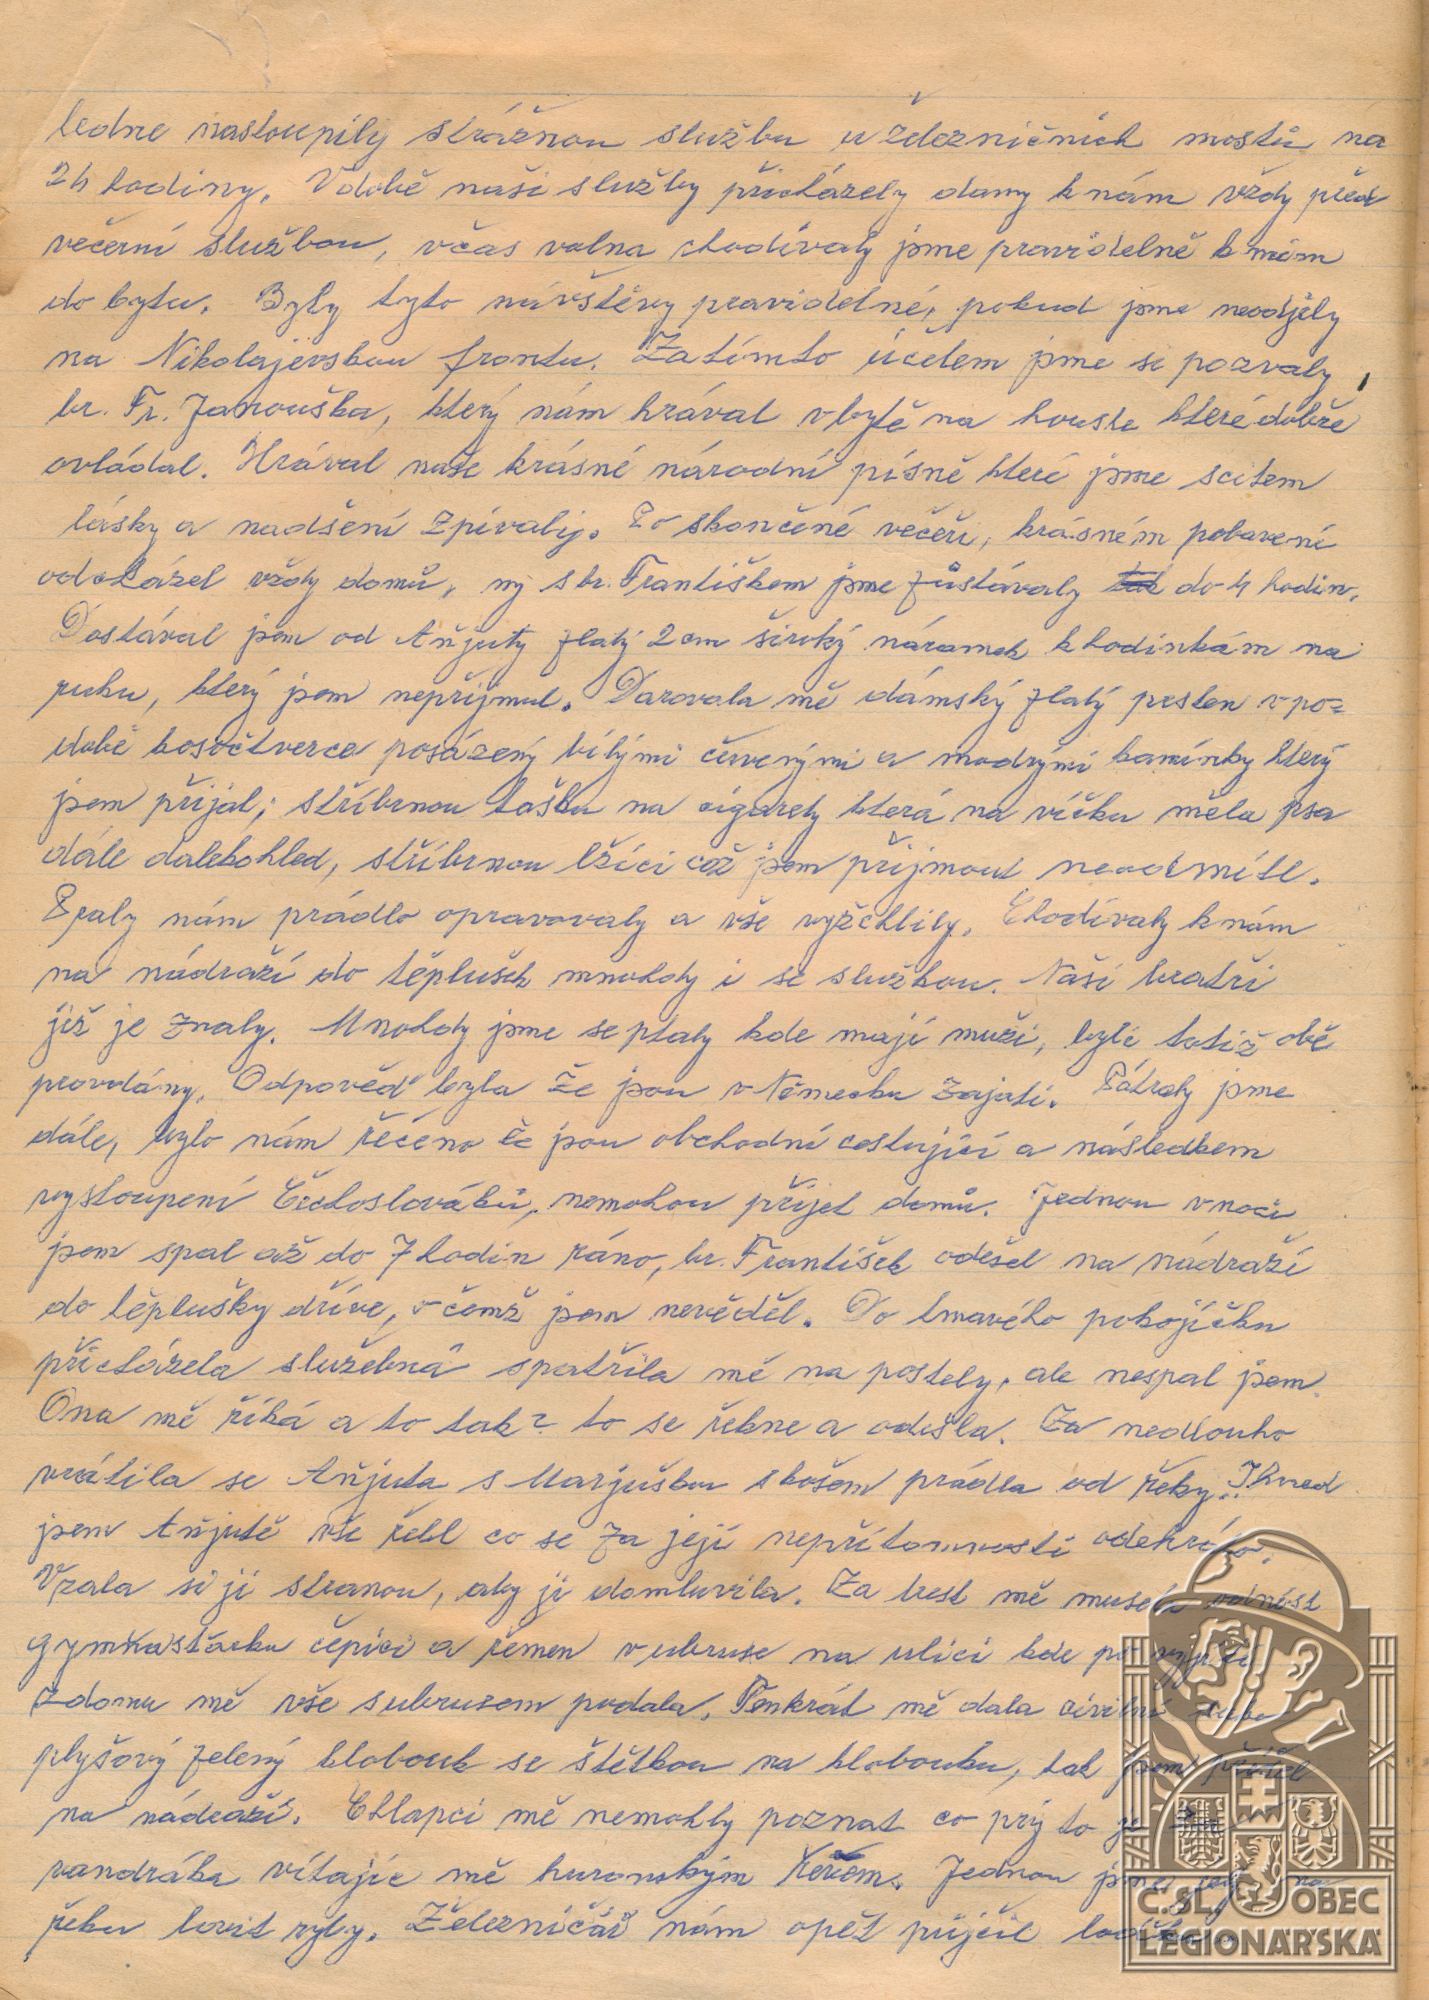 ledne nastoupily strážnou službu u železničních mostů na
24 hodiny. V době naši služby přicházely damy k nám vždy před
večerní službou, včas volna chodívaly jsme pravidelně k nim
do bytu. Byly tyto návštěvy pravidelné, pokud jsme neodjely
na Nikolajevskou frontu. Za tímto účelem jsme si pozvaly
br. Fr. Janouška, který nám hrával v bytě na housle které dobře
ovládal. Hrával naše krásné národní písně které jsme scitem
lásky a nadšení zpívaly. Po skončené večeři, krásném pobavení
odcházel vždy domů, my s br. Františkem jsme zůstávaly do 4 hodin.
Dostával jsem od Aňjuty zlatý 2 cm široký náramek k hodinkám na
ruku, který jsem nepřijmul. Darovala mě dámský zlatý prsten v po=
době kosočtverce posázený bílými červenými a modrými kamínky který
jsem přijal; stříbrnou tašku na cigarety která na víčku měla psa
dále dalekohled, stříbrnou lžíci což jsem přijmout neodmítl.
Praly nám prádlo opravovaly a vše vyžehlily. Chodívaly k nám
na nádraží do těplušek mnohdy i se službou. Naši bratři
již je znaly. Mnohdy jsme se ptaly kde mají muži, byli totiž obě
provdány. Odpověď byla že jsou v Německu zajati. Pátraly jsme
dále, bylo nám řečeno že jsou obchodní cestující a následkem
vystoupení Čechoslováků, nemohou přijet domů. Jednou v noci
jsem spal až do 7 hodin ráno, br. František odešel na nádraží
do těplušky dříve, o čemž jsem nevěděl. Do tmavého pokojíčku
přicházela služebná spatřila mě na postely, ale nespal jsem.
Ona mě říká a to tak? to se řekne a odešla. Za nedlouho
vrátila se Aňjuta s Marjuškou s košem prádla od řeky. Ihned
jsem Aňjutě vše řekl co se za její nepřítomnosti odehrálo.
Vzala si ji stranou, aby ji domluvila. Za trest mě musela odnést
gymnastěrku čepici a řemen v ubruse na ulici kde po vyjití
z domu mě vše s ubrusem podala. Tenkrát mě dala civilní
plyšový zelený klobouk se štětkou na klobouku, tak jsem přišel
na nádraží. Chlapci mě nemohly poznat co prý to je
vandráka vítajíc mě huronským řevem. Jednou jsme na
řeku lovit ryby. Železničář nám opět půjčil
Č.SL. OBEC
LEGIONÁŘSKÁ